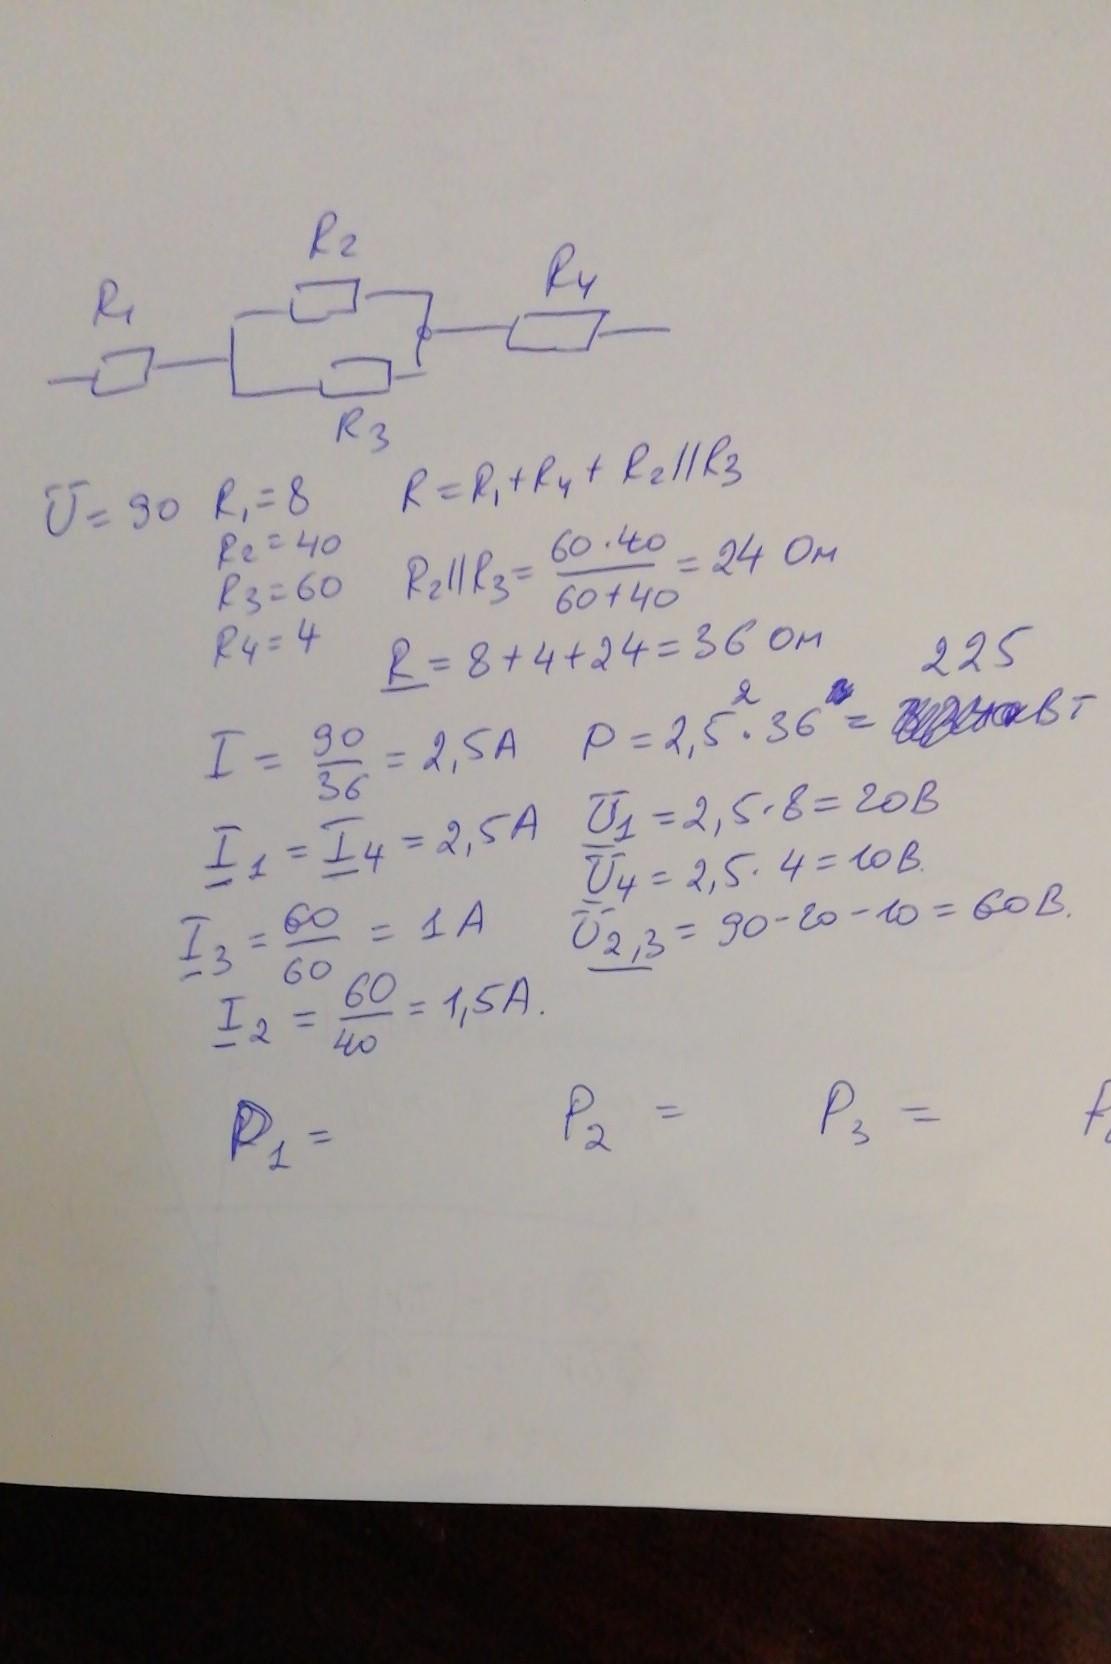 R1
R2
R4
R3
U = 90 R1 = 8 R = R1 + R4 + R2 // R3
R2 = 40
R3 = 60 R2 // R3 = 60 · 40 / 60 + 40 = 24 Ом
R4 = 4
R = 8 + 4 + 24 = 36 Ом
I = 90 / 36 = 2,5 А P = 2,5² · 36 = 225 Вт
I1 = I4 = 2,5 А U1 = 2,5 · 8 = 20 В
U4 = 2,5 · 4 = 10 В.
I3 = 60 / 60 = 1 А U2,3 = 90 - 20 - 10 = 60 В.
I2 = 60 / 40 = 1,5 А.
P1 = P2 = P3 =